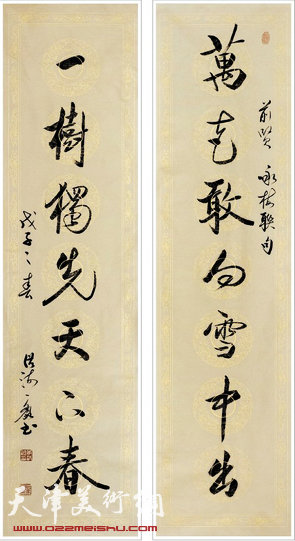 萬花敢向雪中出
前賢 詠梅聯句
一樹獨先天下春
戊子之春
書
天津美術網
www.022meishu.com